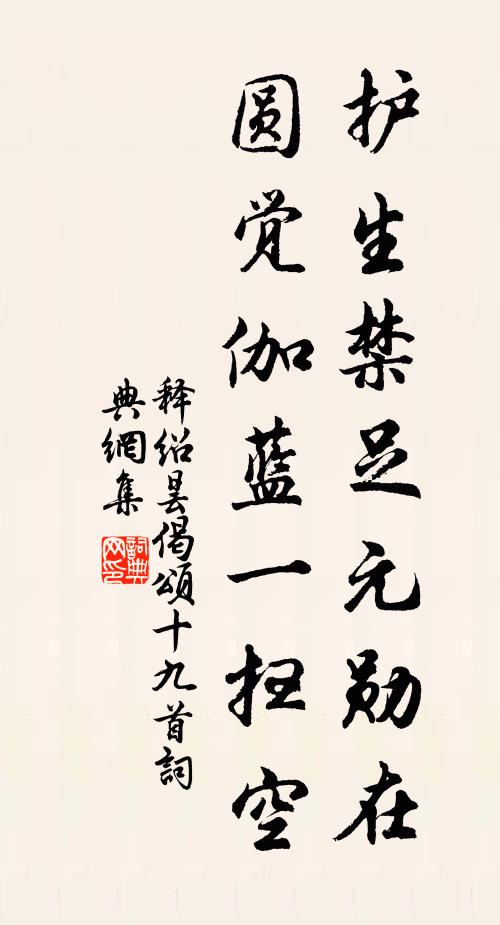 护生禁足元勋在
圆觉伽蓝一扫空
释绍昙偈颂十九首詞
典網集
詞典网印